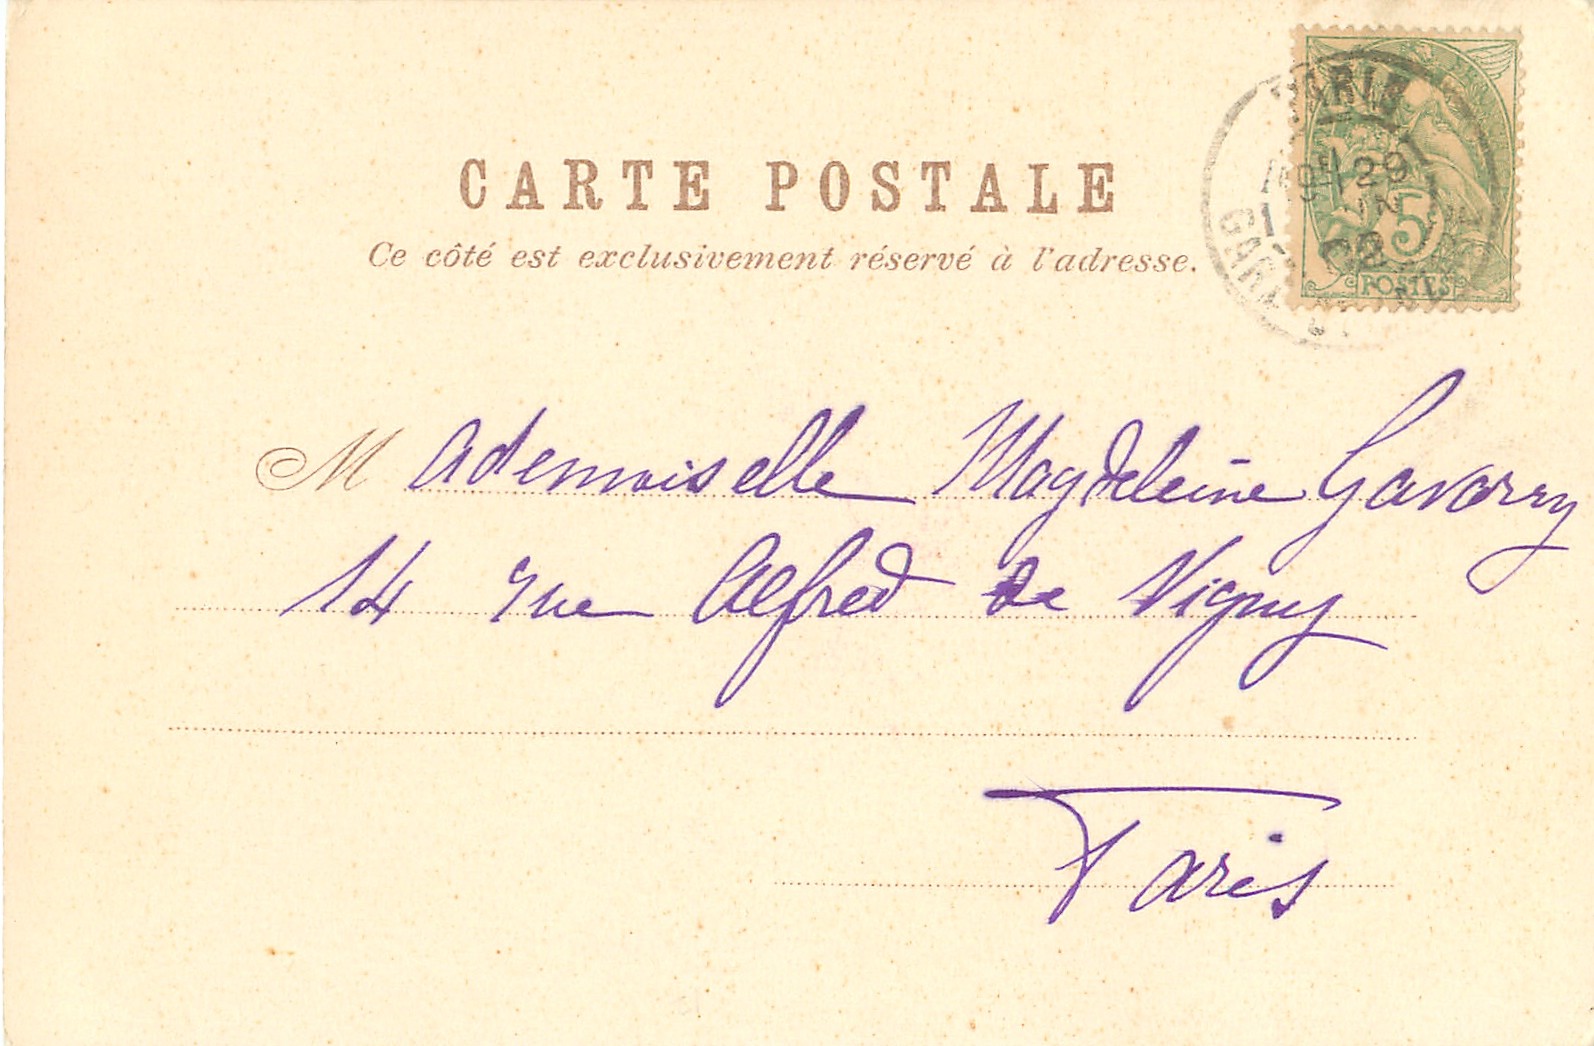 CARTE POSTALE
Ce côté est exclusivement réservé à l'adresse.
PARIS
29
5
POSTES
Mademoiselle Magdeleine Gavarry
14 rue Alfred de Vigny
Paris